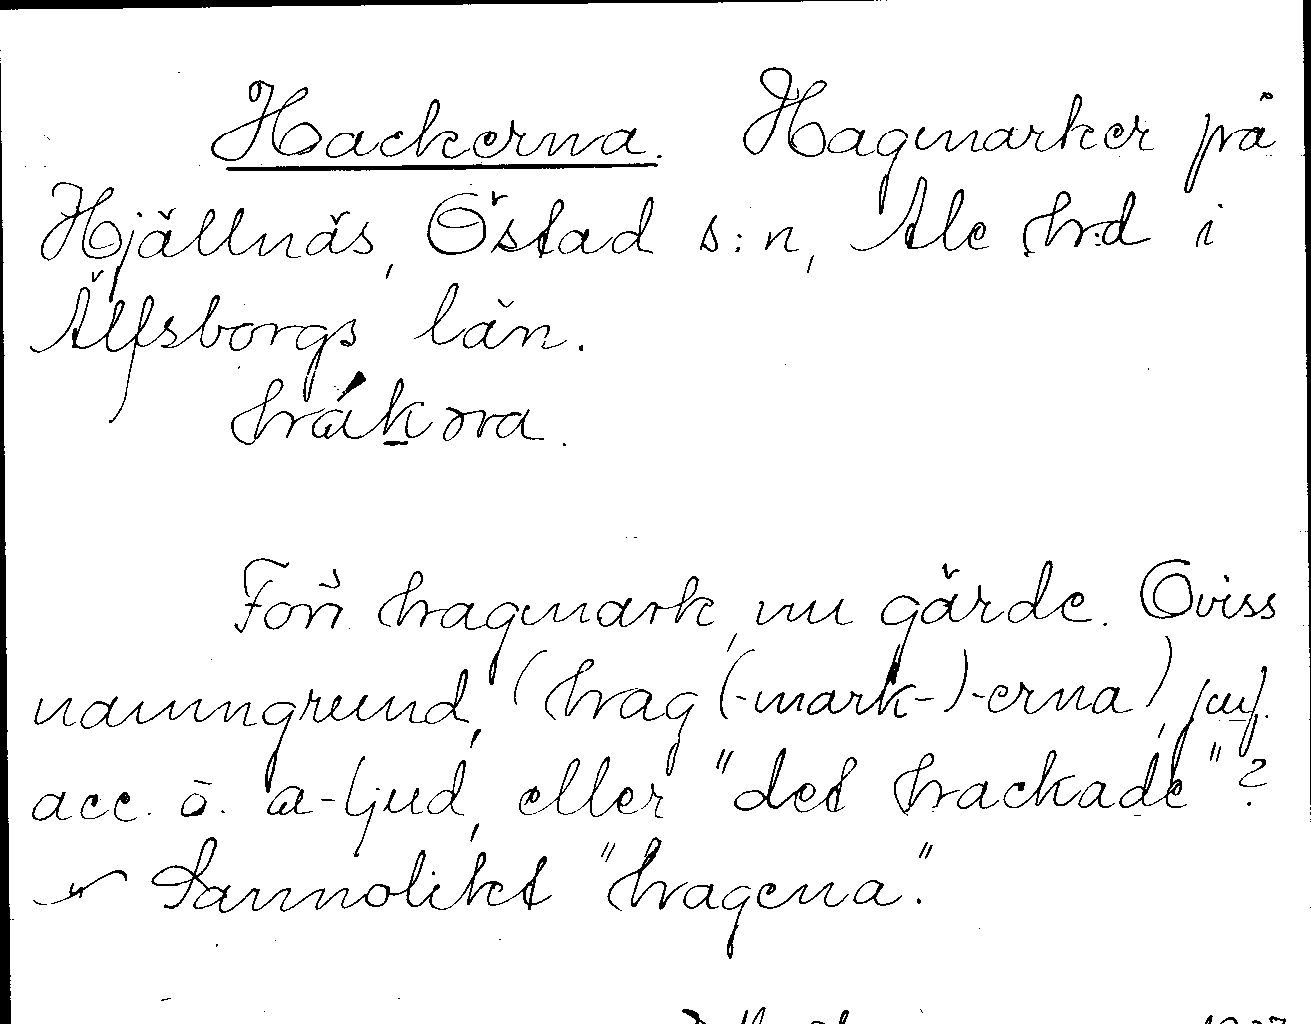 Hackerna. Hagmarker på
Hjällnäs, Östad s:n, Ale hd i
Älfsborgs län.
hɑ́kəra.
Förr hagmark, nu gärde. Oviss
namngrund, (hag(-mark-)-erna), jmf.
acc. o. ɑ-ljud, eller "det hackade"?
Sannolikt "hagena."